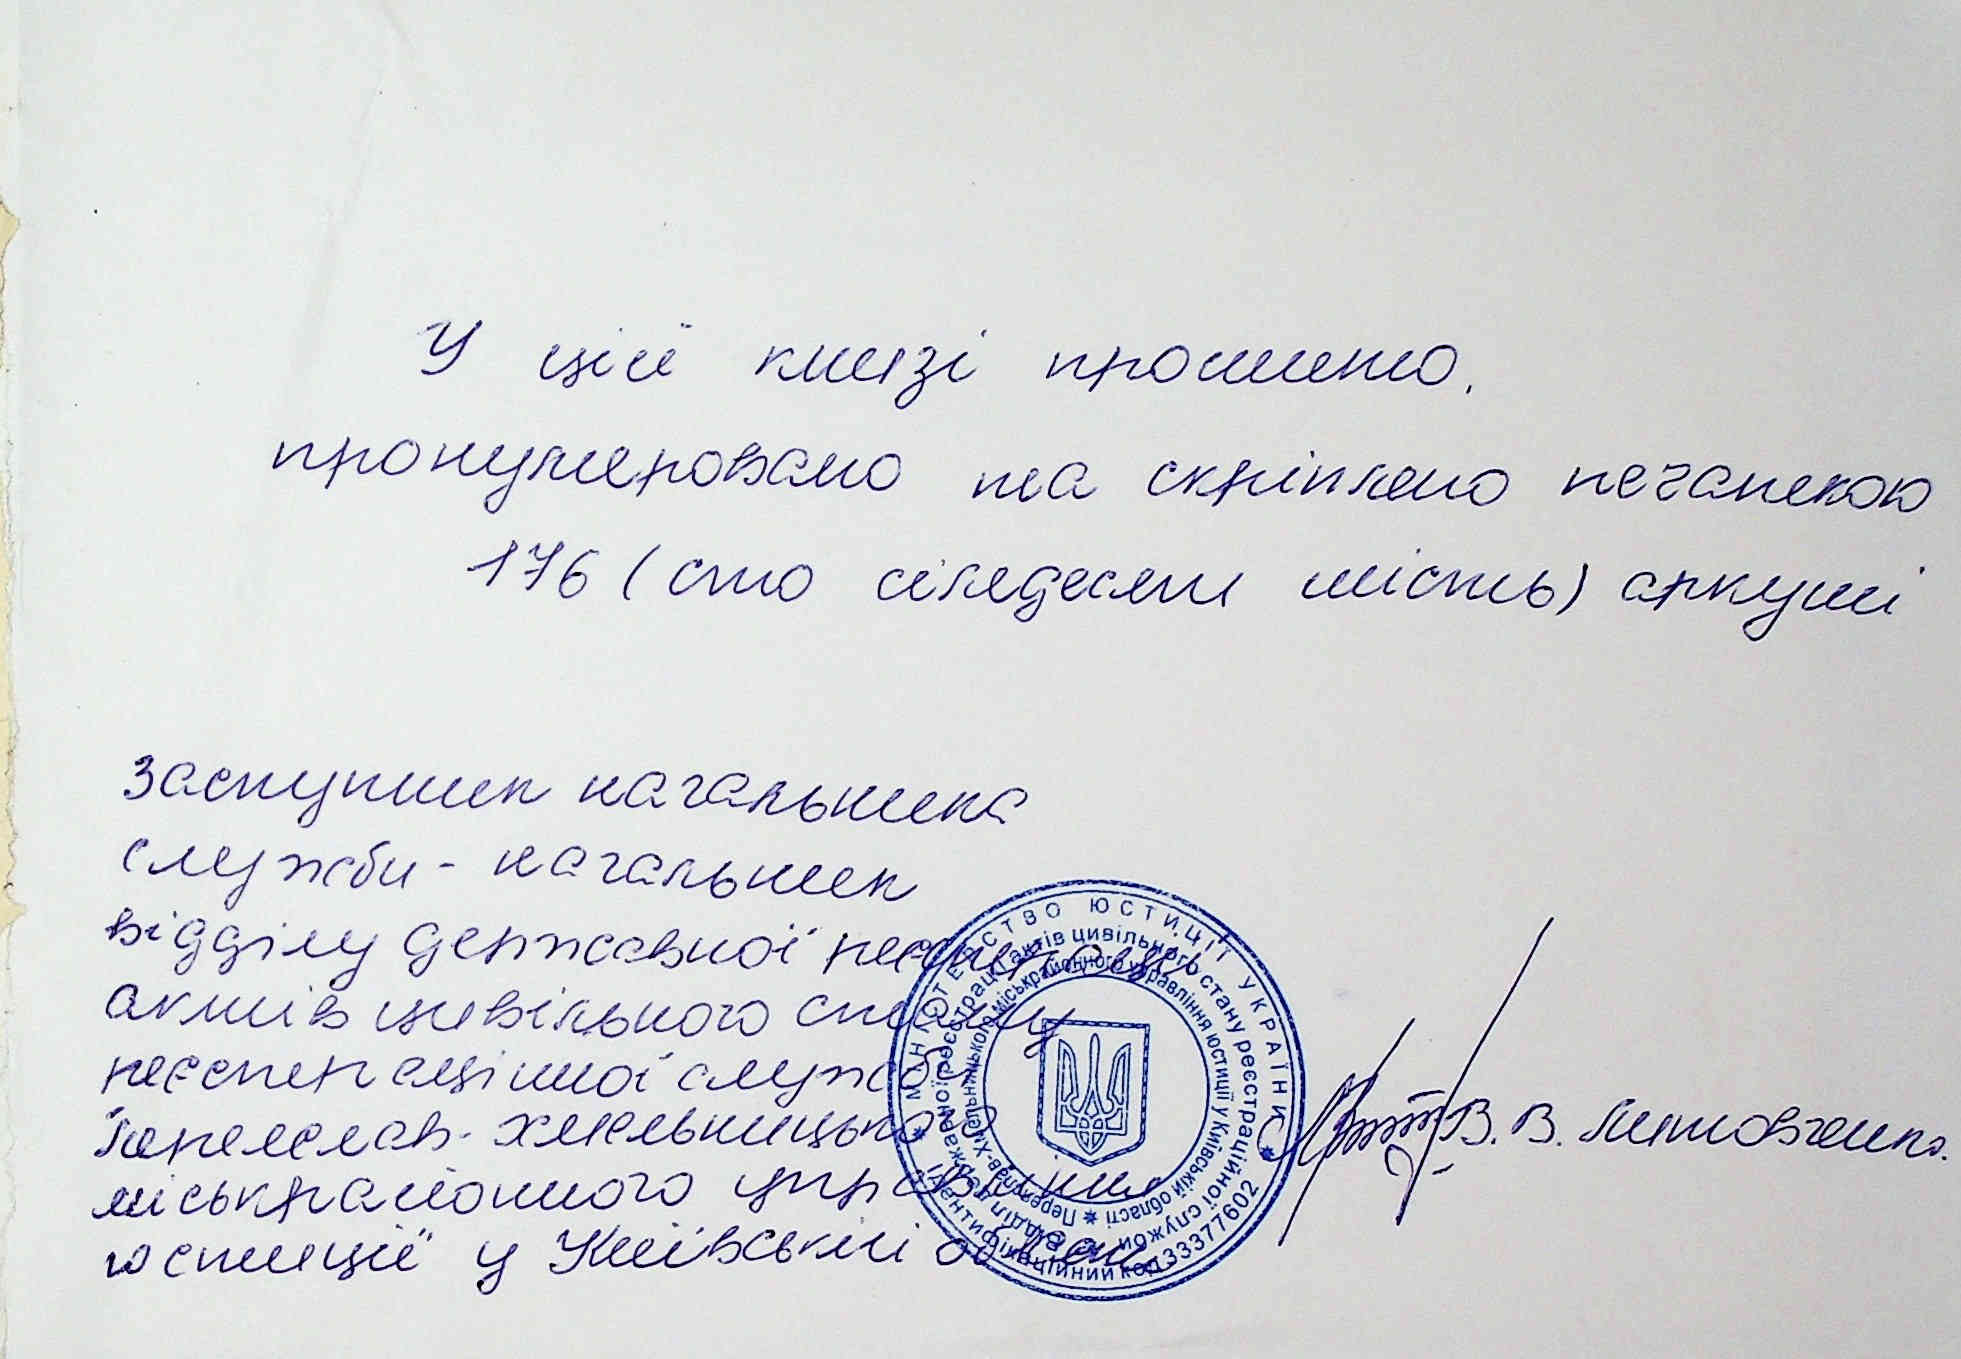 У цій книзі прошито,
пронумеровано та скріплено печаткою
176 (сто сімдесят шість) аркуші
Заступник начальника
служби - начальник
відділу державної реєстрації
актів цивільного стану
реєстраційної служби
Переяслав-Хмельницького
міськрайонного управління
юстиції у Київській області
В. В. Литовченко
МІНІСТЕРСТВО ЮСТИЦІЇ УКРАЇНИ
Ідентифікаційний код 33377602
Відділ державної реєстрації актів цивільного стану реєстраційної служби
Переяслав-Хмельницького міськрайонного управління юстиції у Київській області